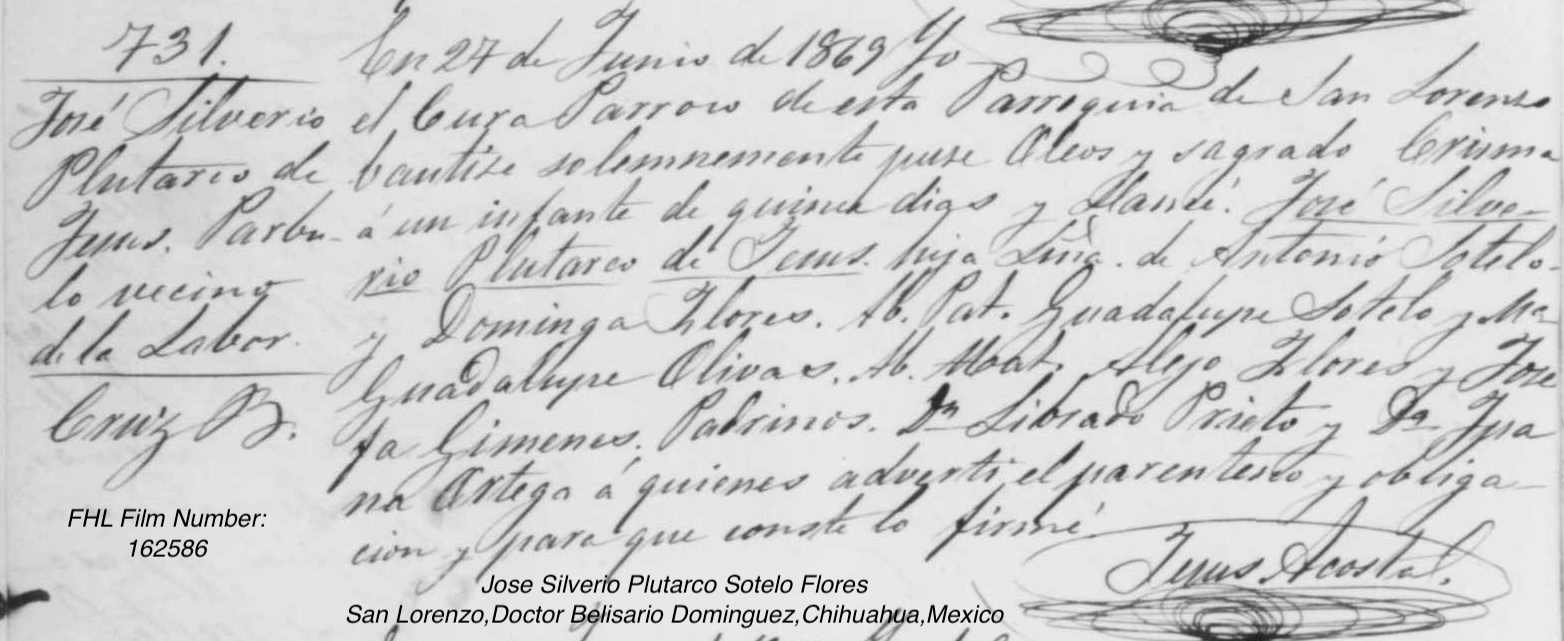 731.
José Silverio
Plutarco de
Jesus. Parbu-
lo vecino
de la Labor.
Cruiz B.
En 27 de Junio de 1869 Yo
el Cura Parroco de esta Parroquia de San Lorenzo
bautize solemnemente puse Oleos y sagrado Crisma
á un infante de quince dias y llamé. José Silve-
rio Plutarco de Jesus. hijo de Antonio Sotelo
y Dominga Flores. Ab. Pat. Guadalupe Sotelo y Ma
Guadalupe Olivas. Ab. Mat. Alejo Flores y Jose
fa Gimenes. Padrinos. Dn Librado Prieto y Da Jua
na Ortega á quienes advertí el parentesco y obliga-
cion y para que conste lo firmé
Jesus Acosta.
FHL Film Number:
162586
Jose Silverio Plutarco Sotelo Flores
San Lorenzo,Doctor Belisario Dominguez,Chihuahua,Mexico